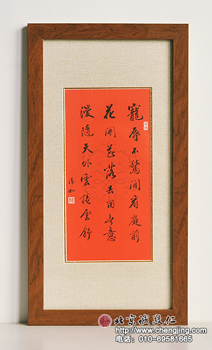 寵辱不驚閒看庭前
花開花落去留無意
漫隨天外雲卷雲舒
北京誠敬仁
www.chengjing.com
电话：010-69581665